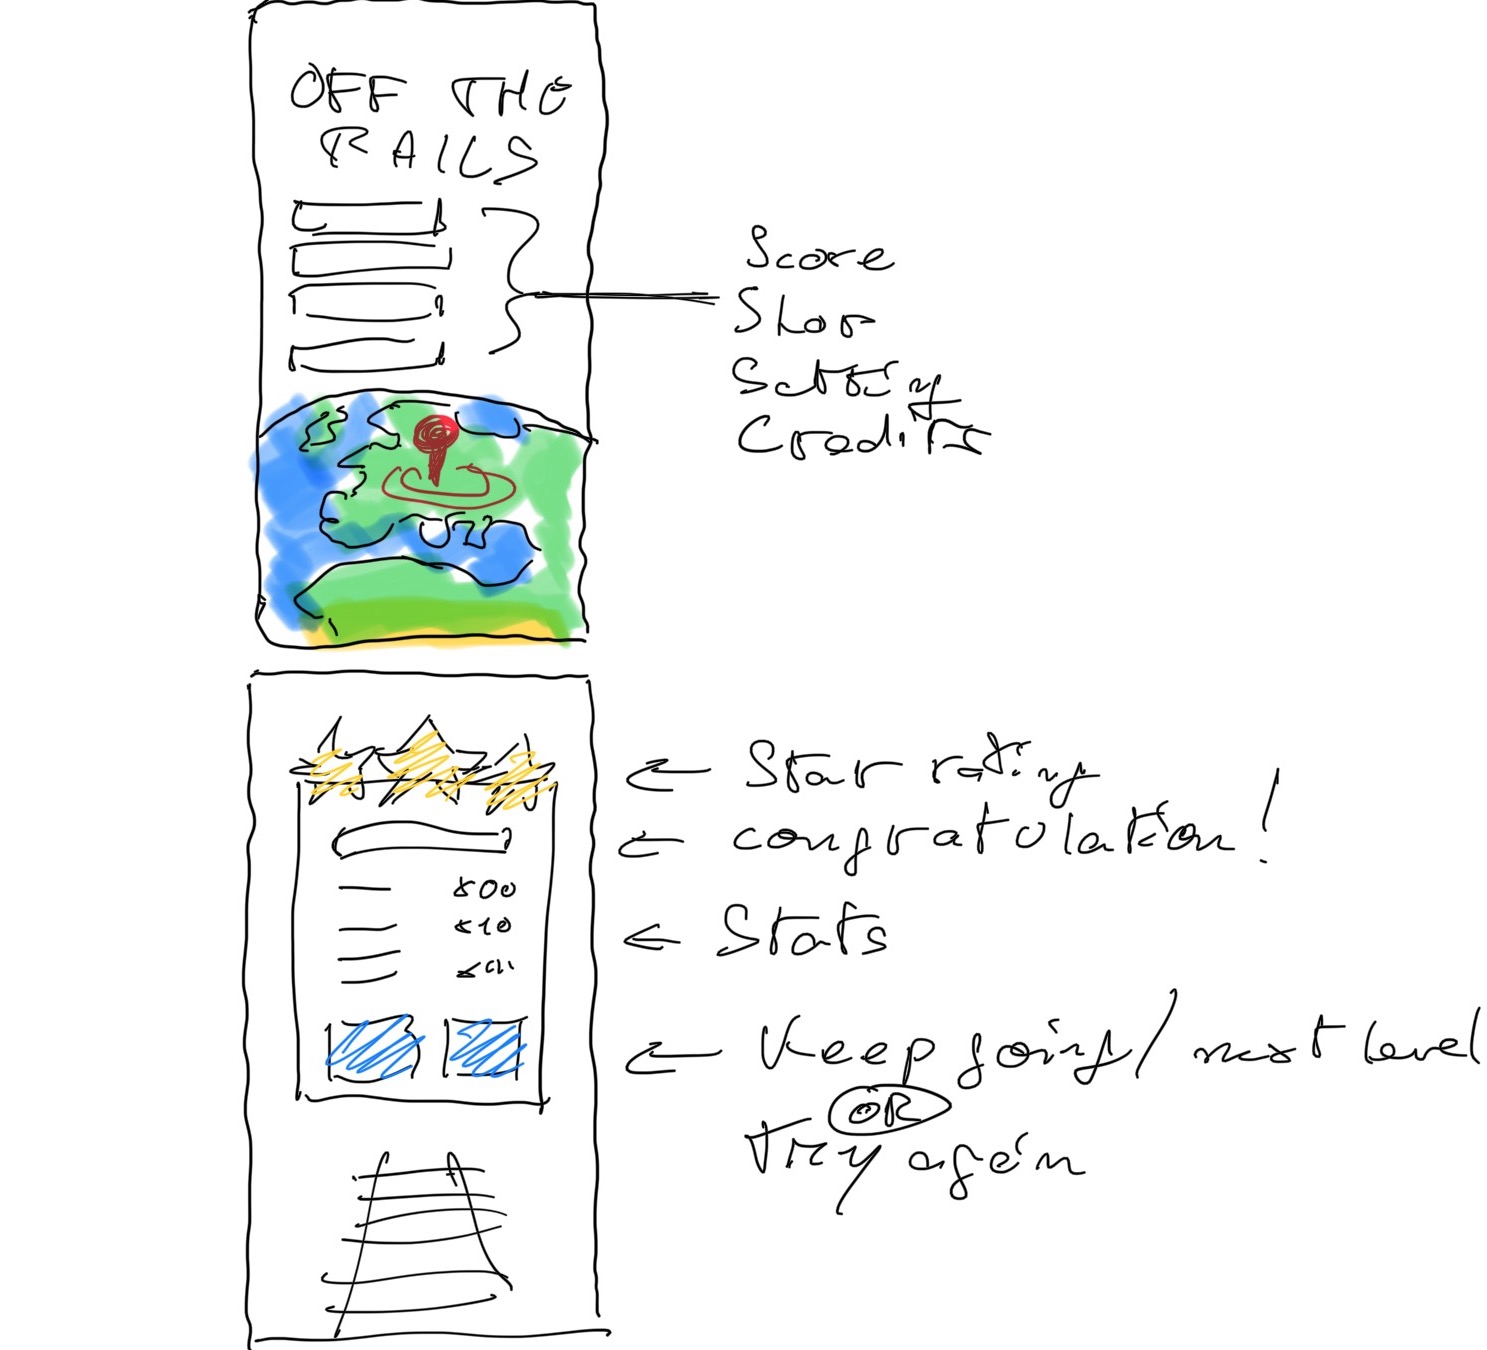 OFF THE
RAILS
Score
Shop
Setting
Credits
Star rating
congratulation!
x00
x10
Stats
Keep going/next level
OR
Try again